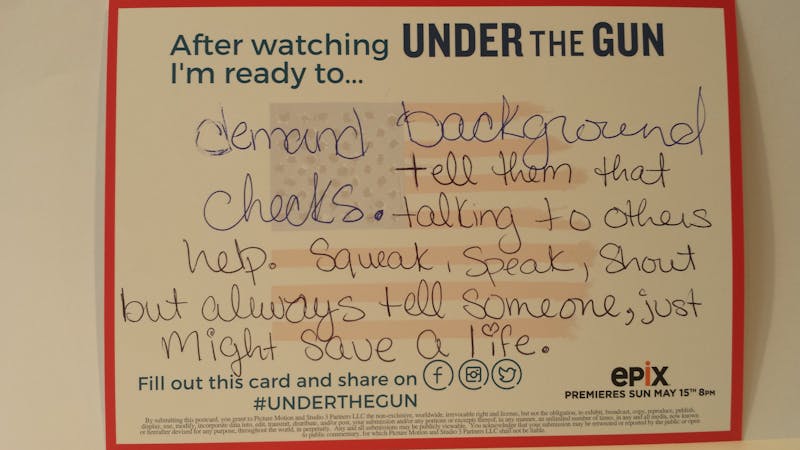 After watching UNDER THE GUN
I'm ready to...
demand background
tell them that
checks. talking to others
help. Squeak, Speak, Shout
but always tell someone, just
Might save a life.
Fill out this card and share on
#UNDERTHEGUN
epix
PREMIERES SUN MAY 15TH 8PM
By submitting this postcard, you grant to Picture Motion and Studio 3 Partners LLC the non-exclusive, worldwide, irrevocable right and license, but not the obligation, to exhibit, broadcast, copy, reproduce, publish,
display, use, modify, incorporate data into, edit, transmit, distribute, and/or post, your submission and/or any portions or excerpts thereof, in any manner, an unlimited number of times, in any and all media, now known
or hereafter devised for any purpose, throughout the world, in perpetuity. Any and all submissions may be publicly viewable. You acknowledge that your submission may be retweeted or reposted by the public or open
to public commentary, for which Picture Motion and Studio 3 Partners LLC shall not be liable.